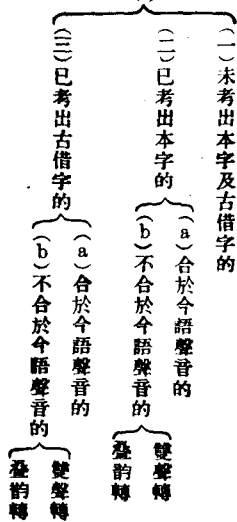 (一)未考出本字及古借字的
(二)已考出本字的
(a)合於今語聲音的
(b)不合於今語聲音的
雙聲轉
疊韵轉
(三)已考出古借字的
(a)合於今語聲音的
(b)不合於今語聲音的
雙聲轉
疊韵轉